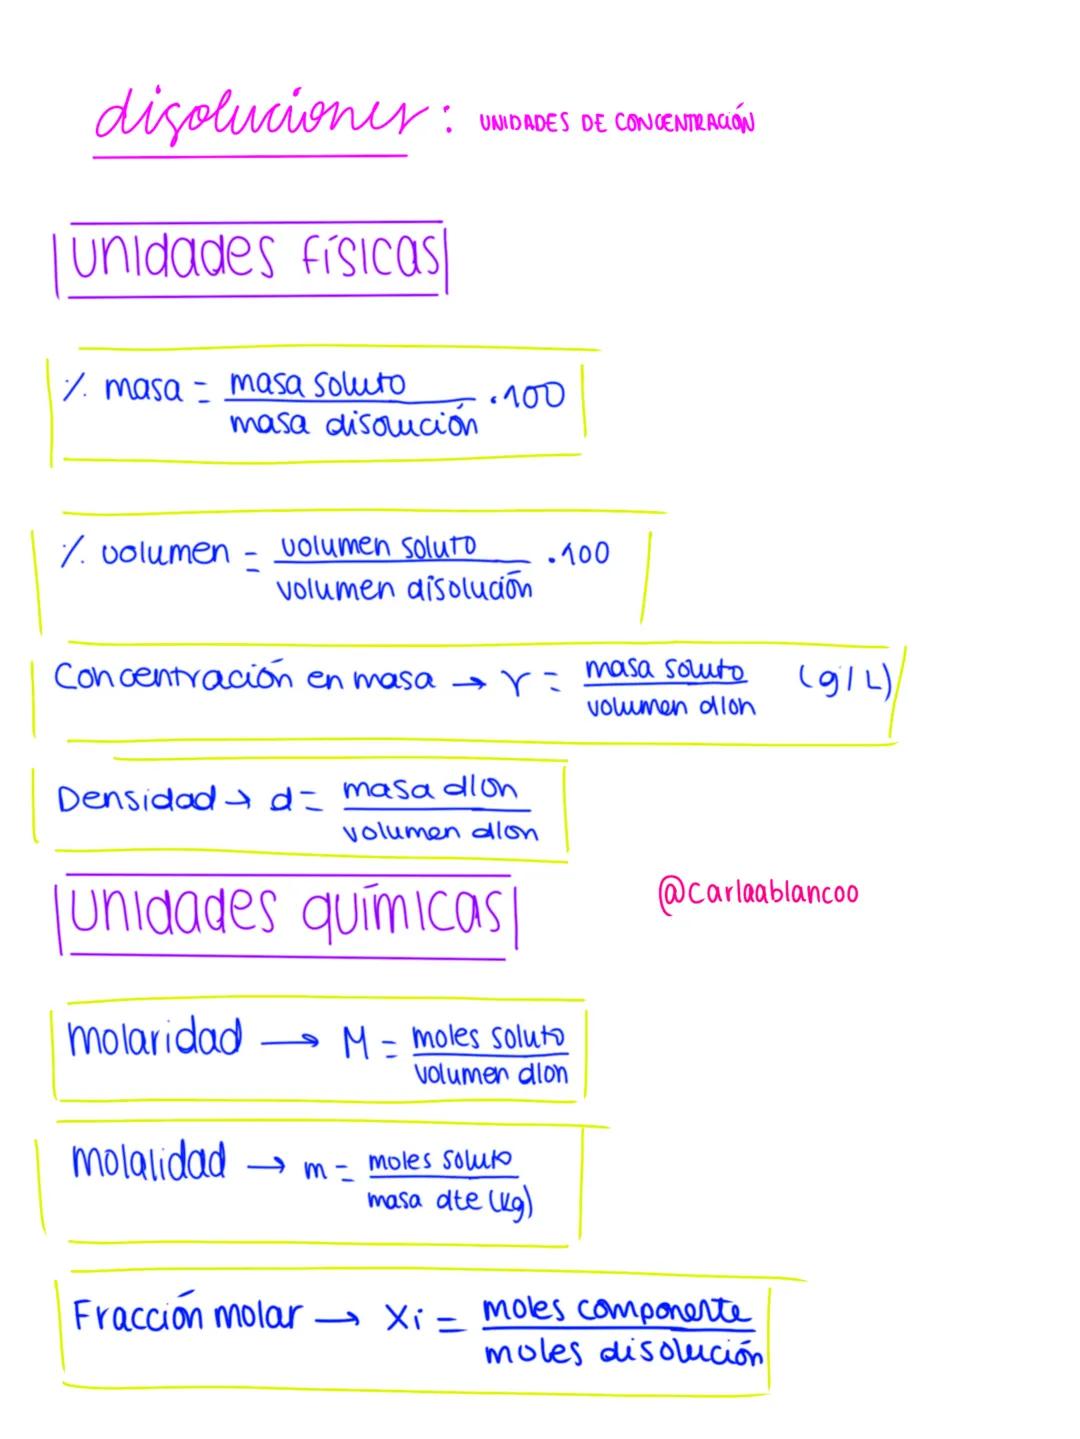 disoluciones: UNIDADES DE CONCENTRACIÓN
Unidades físicas
% masa = masa soluto / masa disolución · 100
% volumen = volumen soluto / volumen disolución · 100
Concentración en masa → γ = masa soluto / volumen dlon (g/L)
Densidad → d = masa dlon / volumen dlon
Unidades químicas
@carlaablancoo
Molaridad → M = moles soluto / volumen dlon
Molalidad → m = moles soluto / masa dte (kg)
Fracción molar → Xi = moles componente / moles disolución